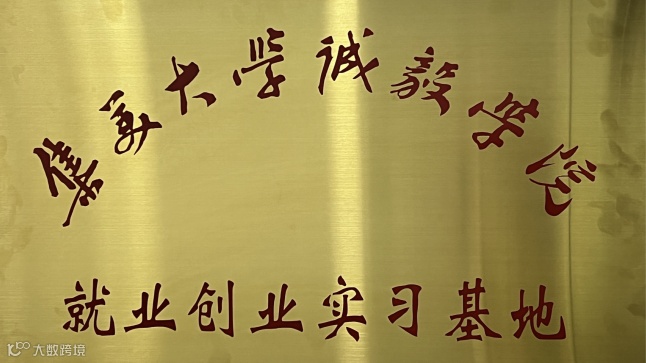 集美大学诚毅学院
就业创业实习基地
大数跨境